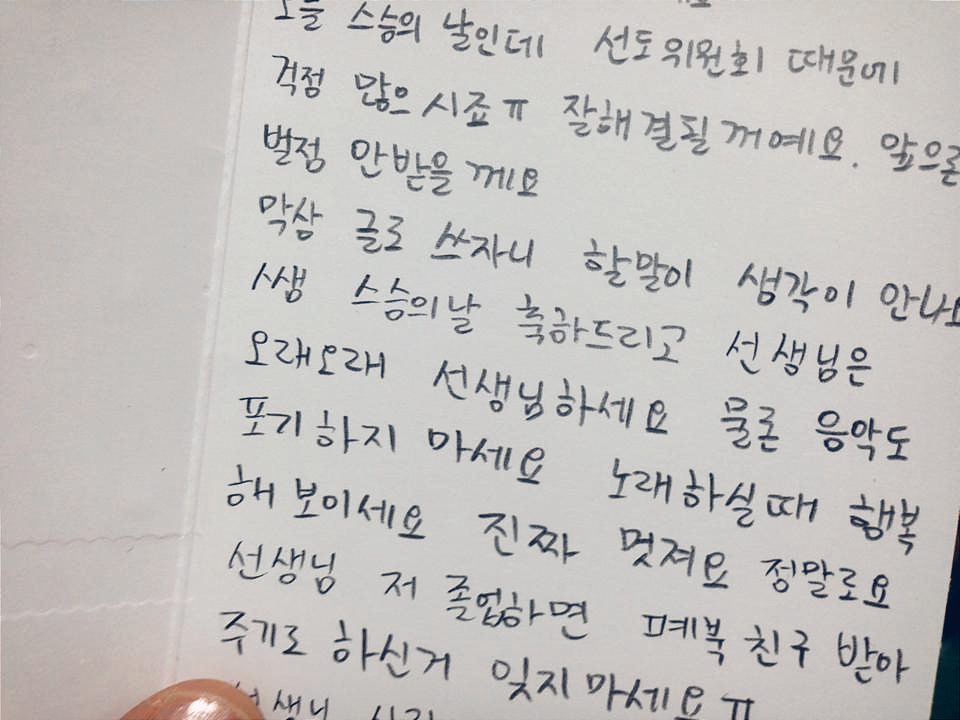 오늘 스승의 날인데 선도위원회 때문에
걱정 많으시죠ㅠ 잘해결될꺼예요. 앞으론
벌점 안받을께요
막상 글로 쓰자니 할말이 생각이 안나요
쌤 스승의날 축하드리고 선생님은
오래오래 선생님하세요 물론 음악도
포기하지 마세요 노래하실때 행복
해보이세요 진짜 멋져요 정말로요
선생님 저 졸업하면 페북친구 받아
주기로 하신거 잊지마세요ㅠ